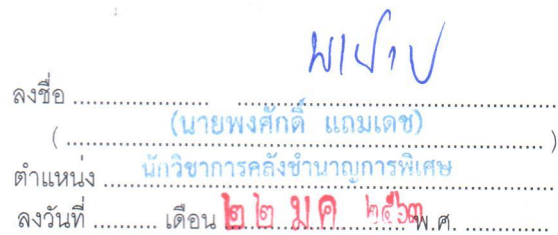 ลงชื่อ ....................
( (นายพงศักดิ์ แถมเดช) )
ตำแหน่ง นักวิชาการคลังชำนาญการพิเศษ
ลงวันที่ .......... เดือน ๒๒ มค ๒๕๖๓ พ.ศ. ............